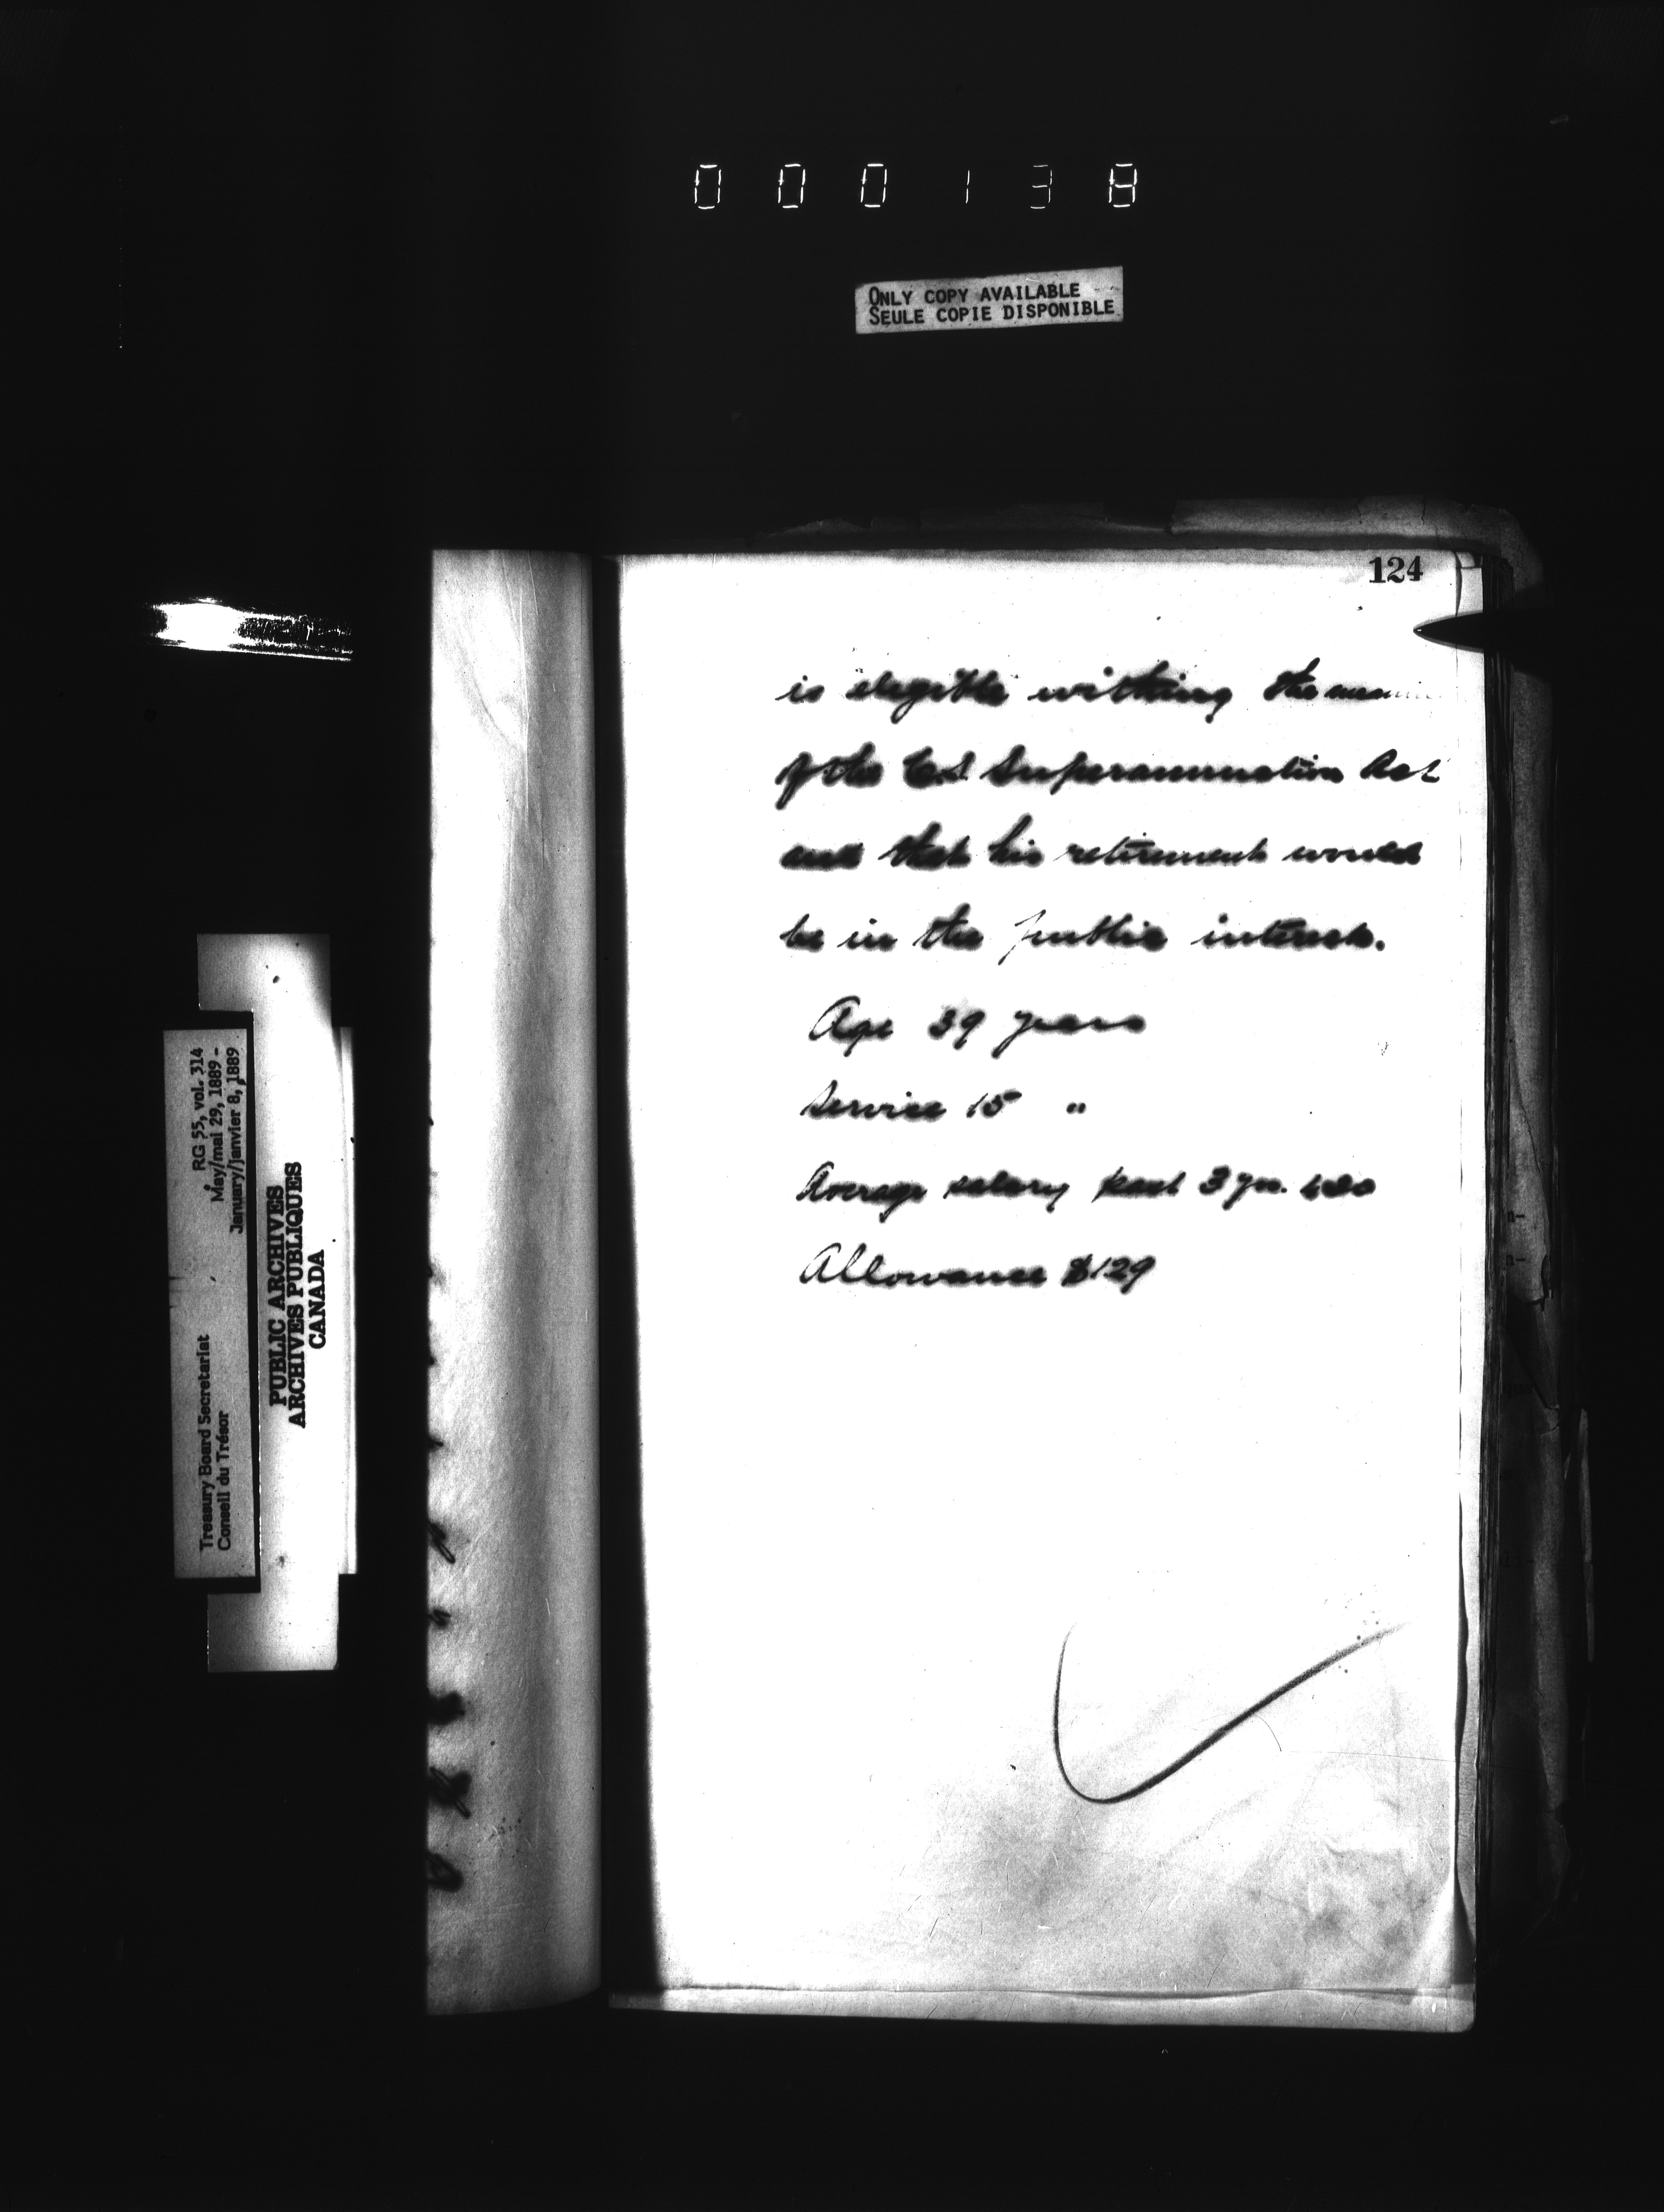 000138
ONLY COPY AVAILABLE
SEULE COPIE DISPONIBLE
124
is elegible withing the
of the C.S Superannuation Act
and that his retirement would
be in the public interest.
Age 39 years
Service 15 "
Average salary past 3 yrs.
Allowance $129
RG 55, vol. 314
May/mai 29, 1889 -
January/janvier 8, 1889
Treasury Board Secretariat
Conseil du Trésor
PUBLIC ARCHIVES
ARCHIVES PUBLIQUES
CANADA